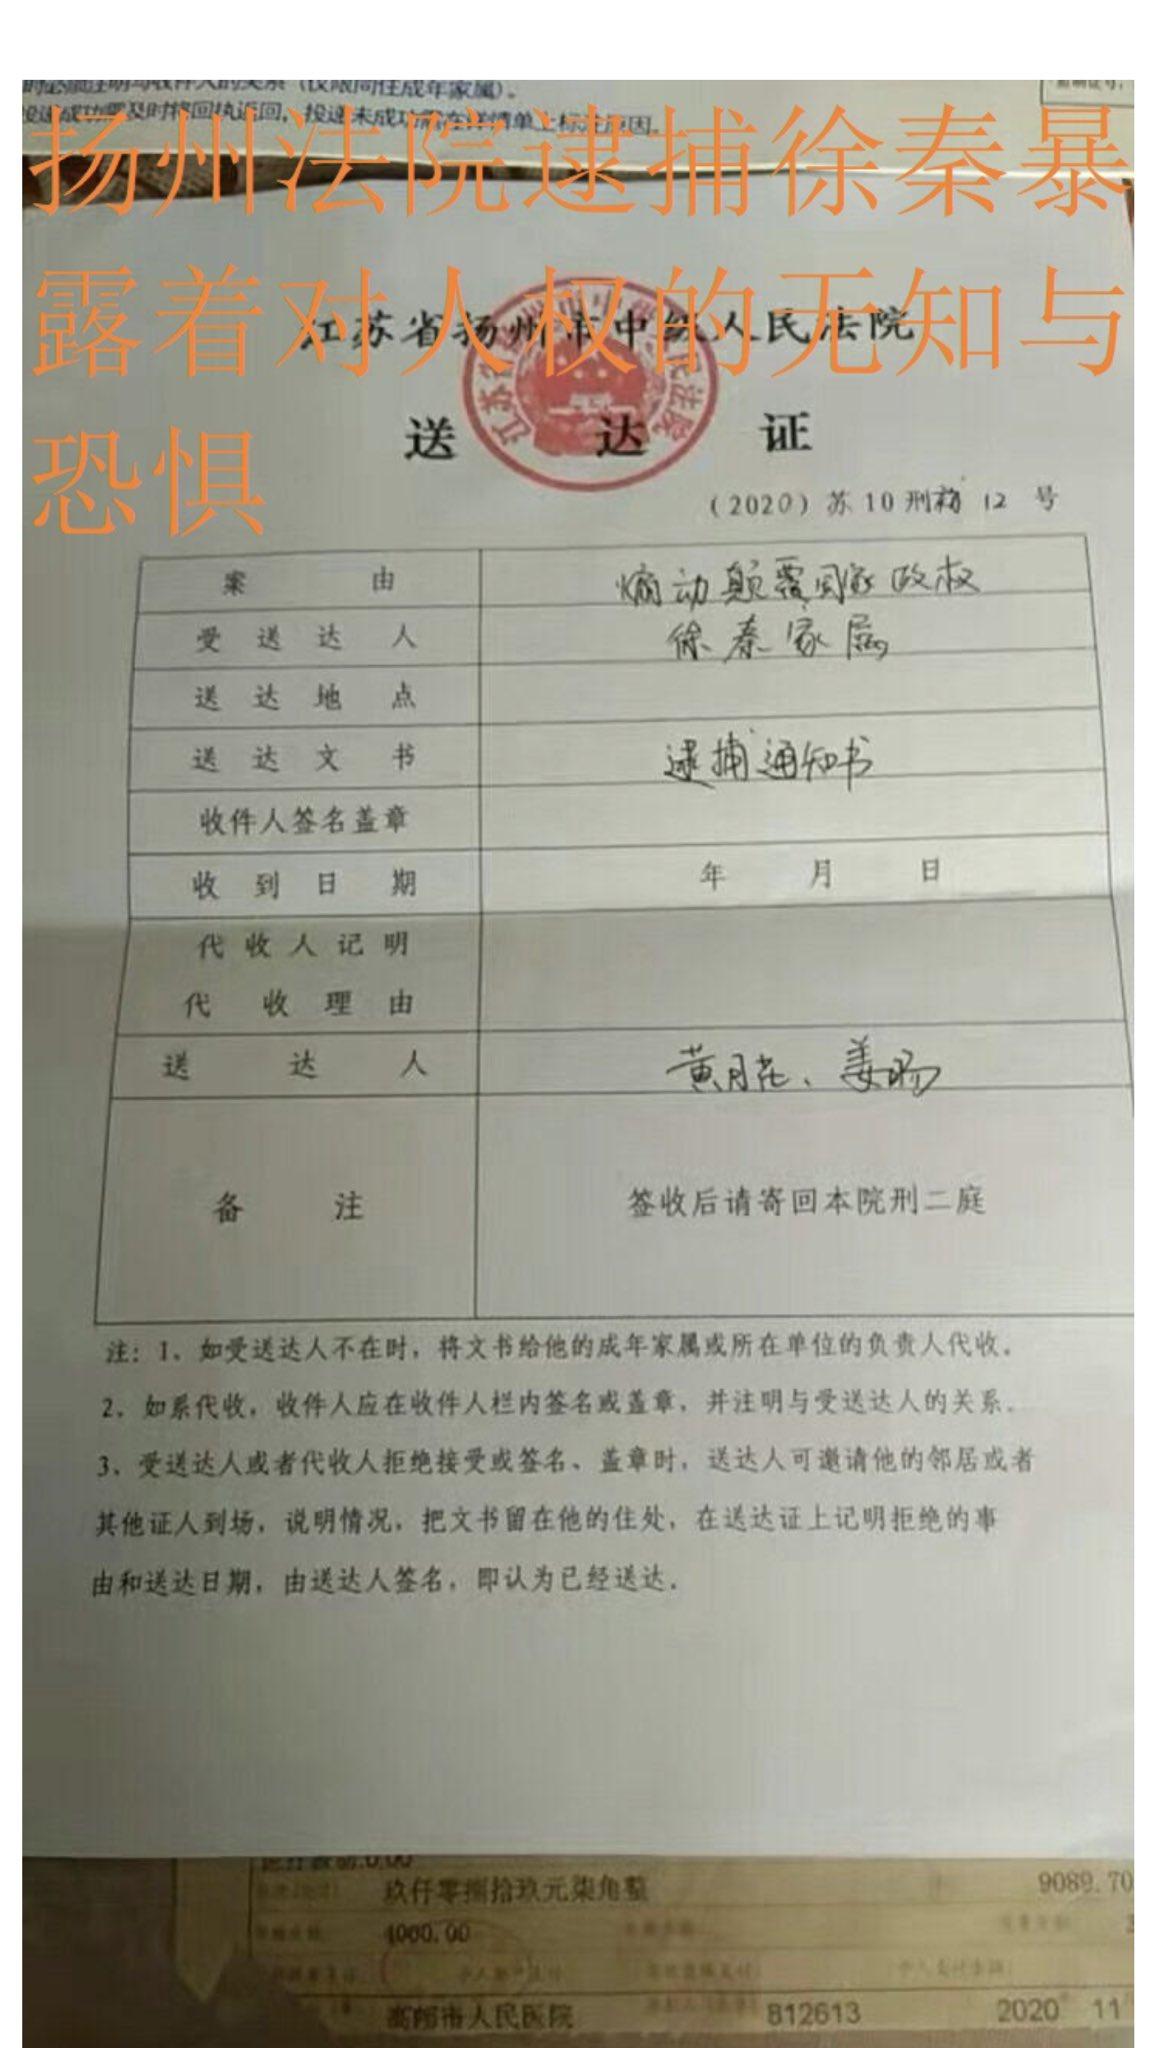 扬州法院逮捕徐秦暴
露着对人权的无知与
恐惧
投递成功需及时将回执返回，投递未成功需在详情单上标注原因。
江苏省扬州市中级人民法院
送 达 证
（2020）苏10刑初12号
案 由
煽动颠覆国家政权
受 送 达 人
徐秦家属
送 达 地 点
送 达 文 书
逮捕通知书
收件人签名盖章
收 到 日 期
年 月 日
代 收 人 记 明
代 收 理 由
送 达 人
备 注
签收后请寄回本院刑二庭
注：1、如受送达人不在时，将文书给他的成年家属或所在单位的负责人代收。
2、如系代收，收件人应在收件人栏内签名或盖章，并注明与受送达人的关系。
3、受送达人或者代收人拒绝接受或签名、盖章时，送达人可邀请他的邻居或者
其他证人到场，说明情况，把文书留在他的住处，在送达证上记明拒绝的事
由和送达日期，由送达人签名，即认为已经送达。
玖仟零捌拾玖元柒角整
9089.70
4000.00
高邮市人民医院
812613
2020 11